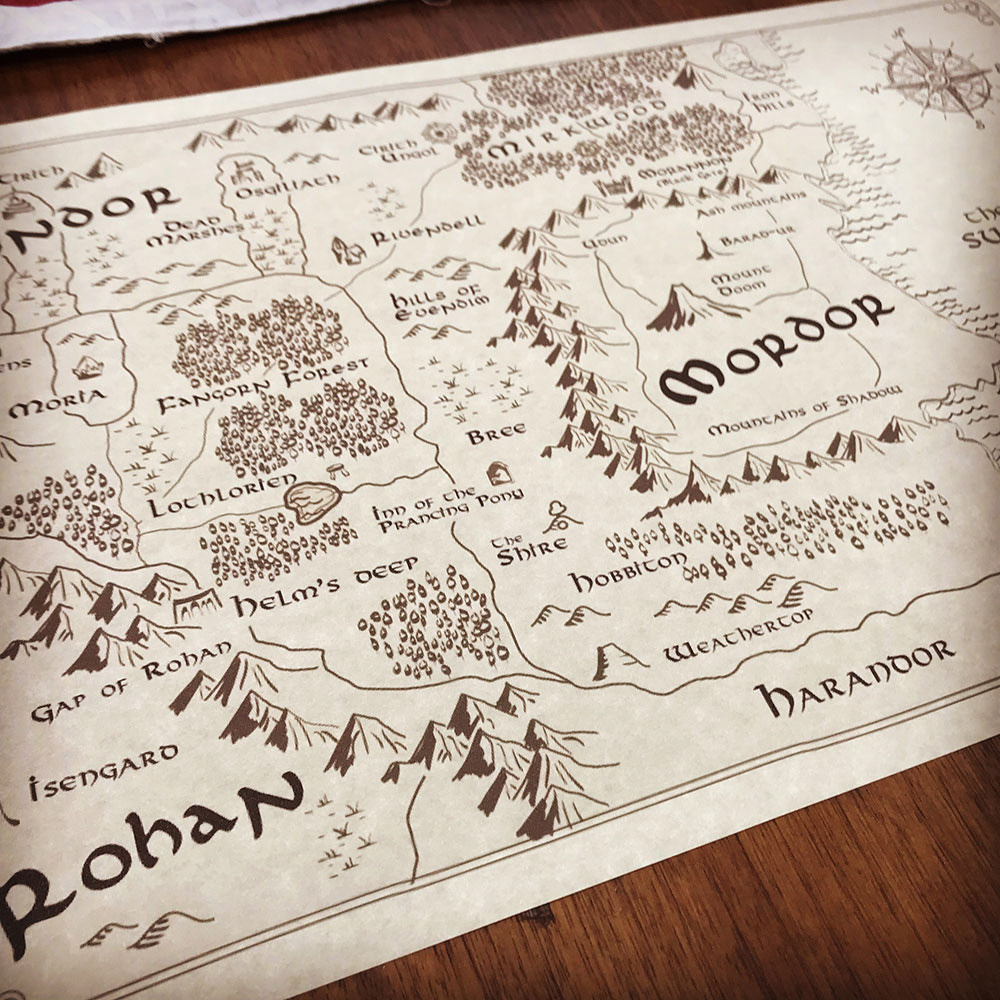 Iron
Hills
W
Mirkwood
Cirith
Ungol
Morannon
(Black Gate)
Tirith
Osgiliath
ndor
Dead
Marshes
Rivendell
Ash mountains
Udun
Barad-ur
The
Su
Mount
Doom
Hills of
Evendim
Mordor
ens
Moria
Fangorn Forest
Mountains of Shadow
Bree
Lothlorien
Inn of the
Prancing Pony
The
Shire
Hobbiton
Helm's Deep
Weathertop
Gap of Rohan
Harandor
Isengard
Rohan